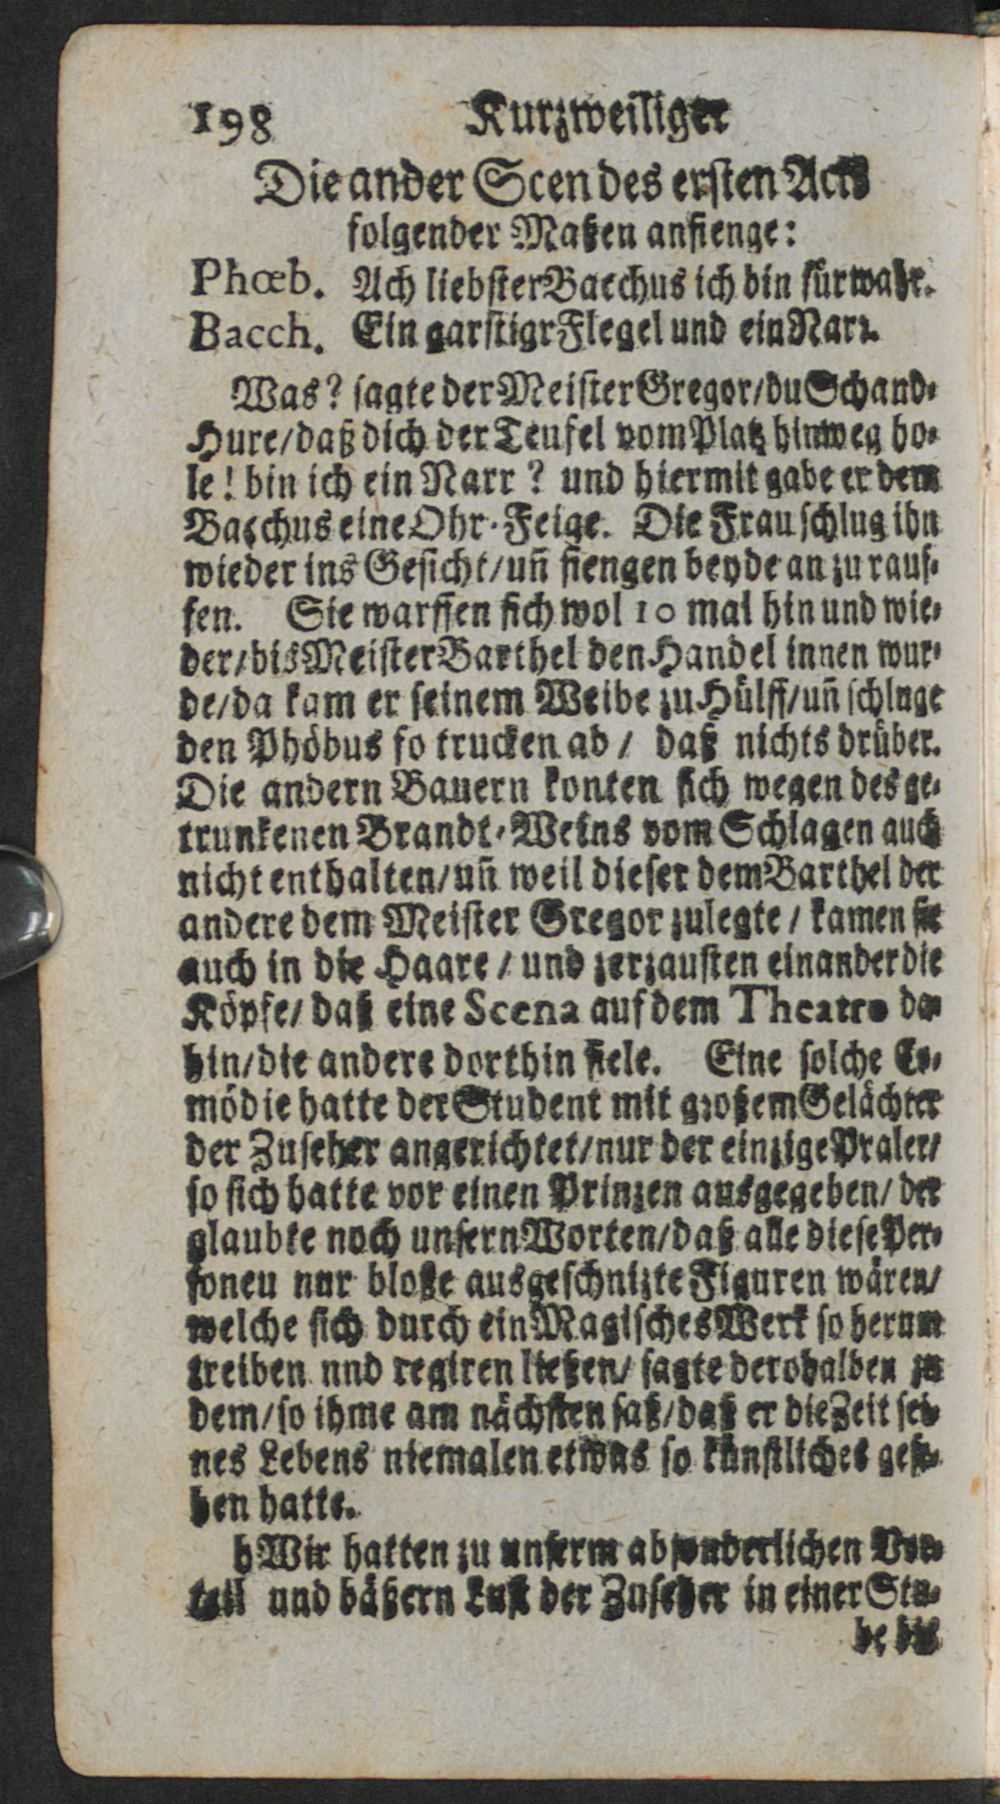 198 Kurzweiliger
Die ander Scen des ersten Acts
folgender Maßen anfienge:
Phœb. Ach liebster Bacchus ich bin fürwahr.
Bacch. Ein garstigr Flegel und ein Narr.
Was? sagte der Meister Gregor/du Schand-
Hure/daß dich der Teufel vom Platz hinweg ho-
le! bin ich ein Narr? und hiermit gabe er dem
Bacchus eine Ohr-Feige. Die Frau schlug ihn
wieder ins Gesicht/uñ fiengen beyde an zu rauf-
fen. Sie warffen sich wol 10 mal hin und wie-
der/bis Meister Barthel den Handel innen wur-
de/da kam er seinem Weibe zu Hülff/uñ schluge
den Phöbus so trucken ab / daß nichts drüber.
Die andern Bauern konten sich wegen des ge-
trunkenen Brandt-Weins vom Schlagen auch
nicht enthalten/uñ weil dieser dem Barthel der
andere dem Meister Gregor zulegte / kamen sie
auch in die Haare / und zerzausten einander die
Köpfe/ daß eine Scena auf dem Theatro da
hin/die andere dorthin fiele. Eine solche Co-
mödie hatte der Student mit großem Gelächter
der Zuseher angerichtet/nur der einzige Praler/
so sich hatte vor einen Prinzen ausgegeben/ der
glaubte noch unsern Worten/daß alle diese Per-
soneu nur bloße ausgeschnizte Figuren wären/
welche sich durch ein Magisches Werk so herum
treiben nnd regiren ließen/ sagte derohalben zu
dem/so ihme am nächsten saß/daß er die Zeit sei-
nes Lebens niemalen etwas so künstliches gese-
hen hatte.
h Wir hatten zu unserm absonderlichen Vor-
teil und bäßern Lust der Zuseher in einer Stu-
be die